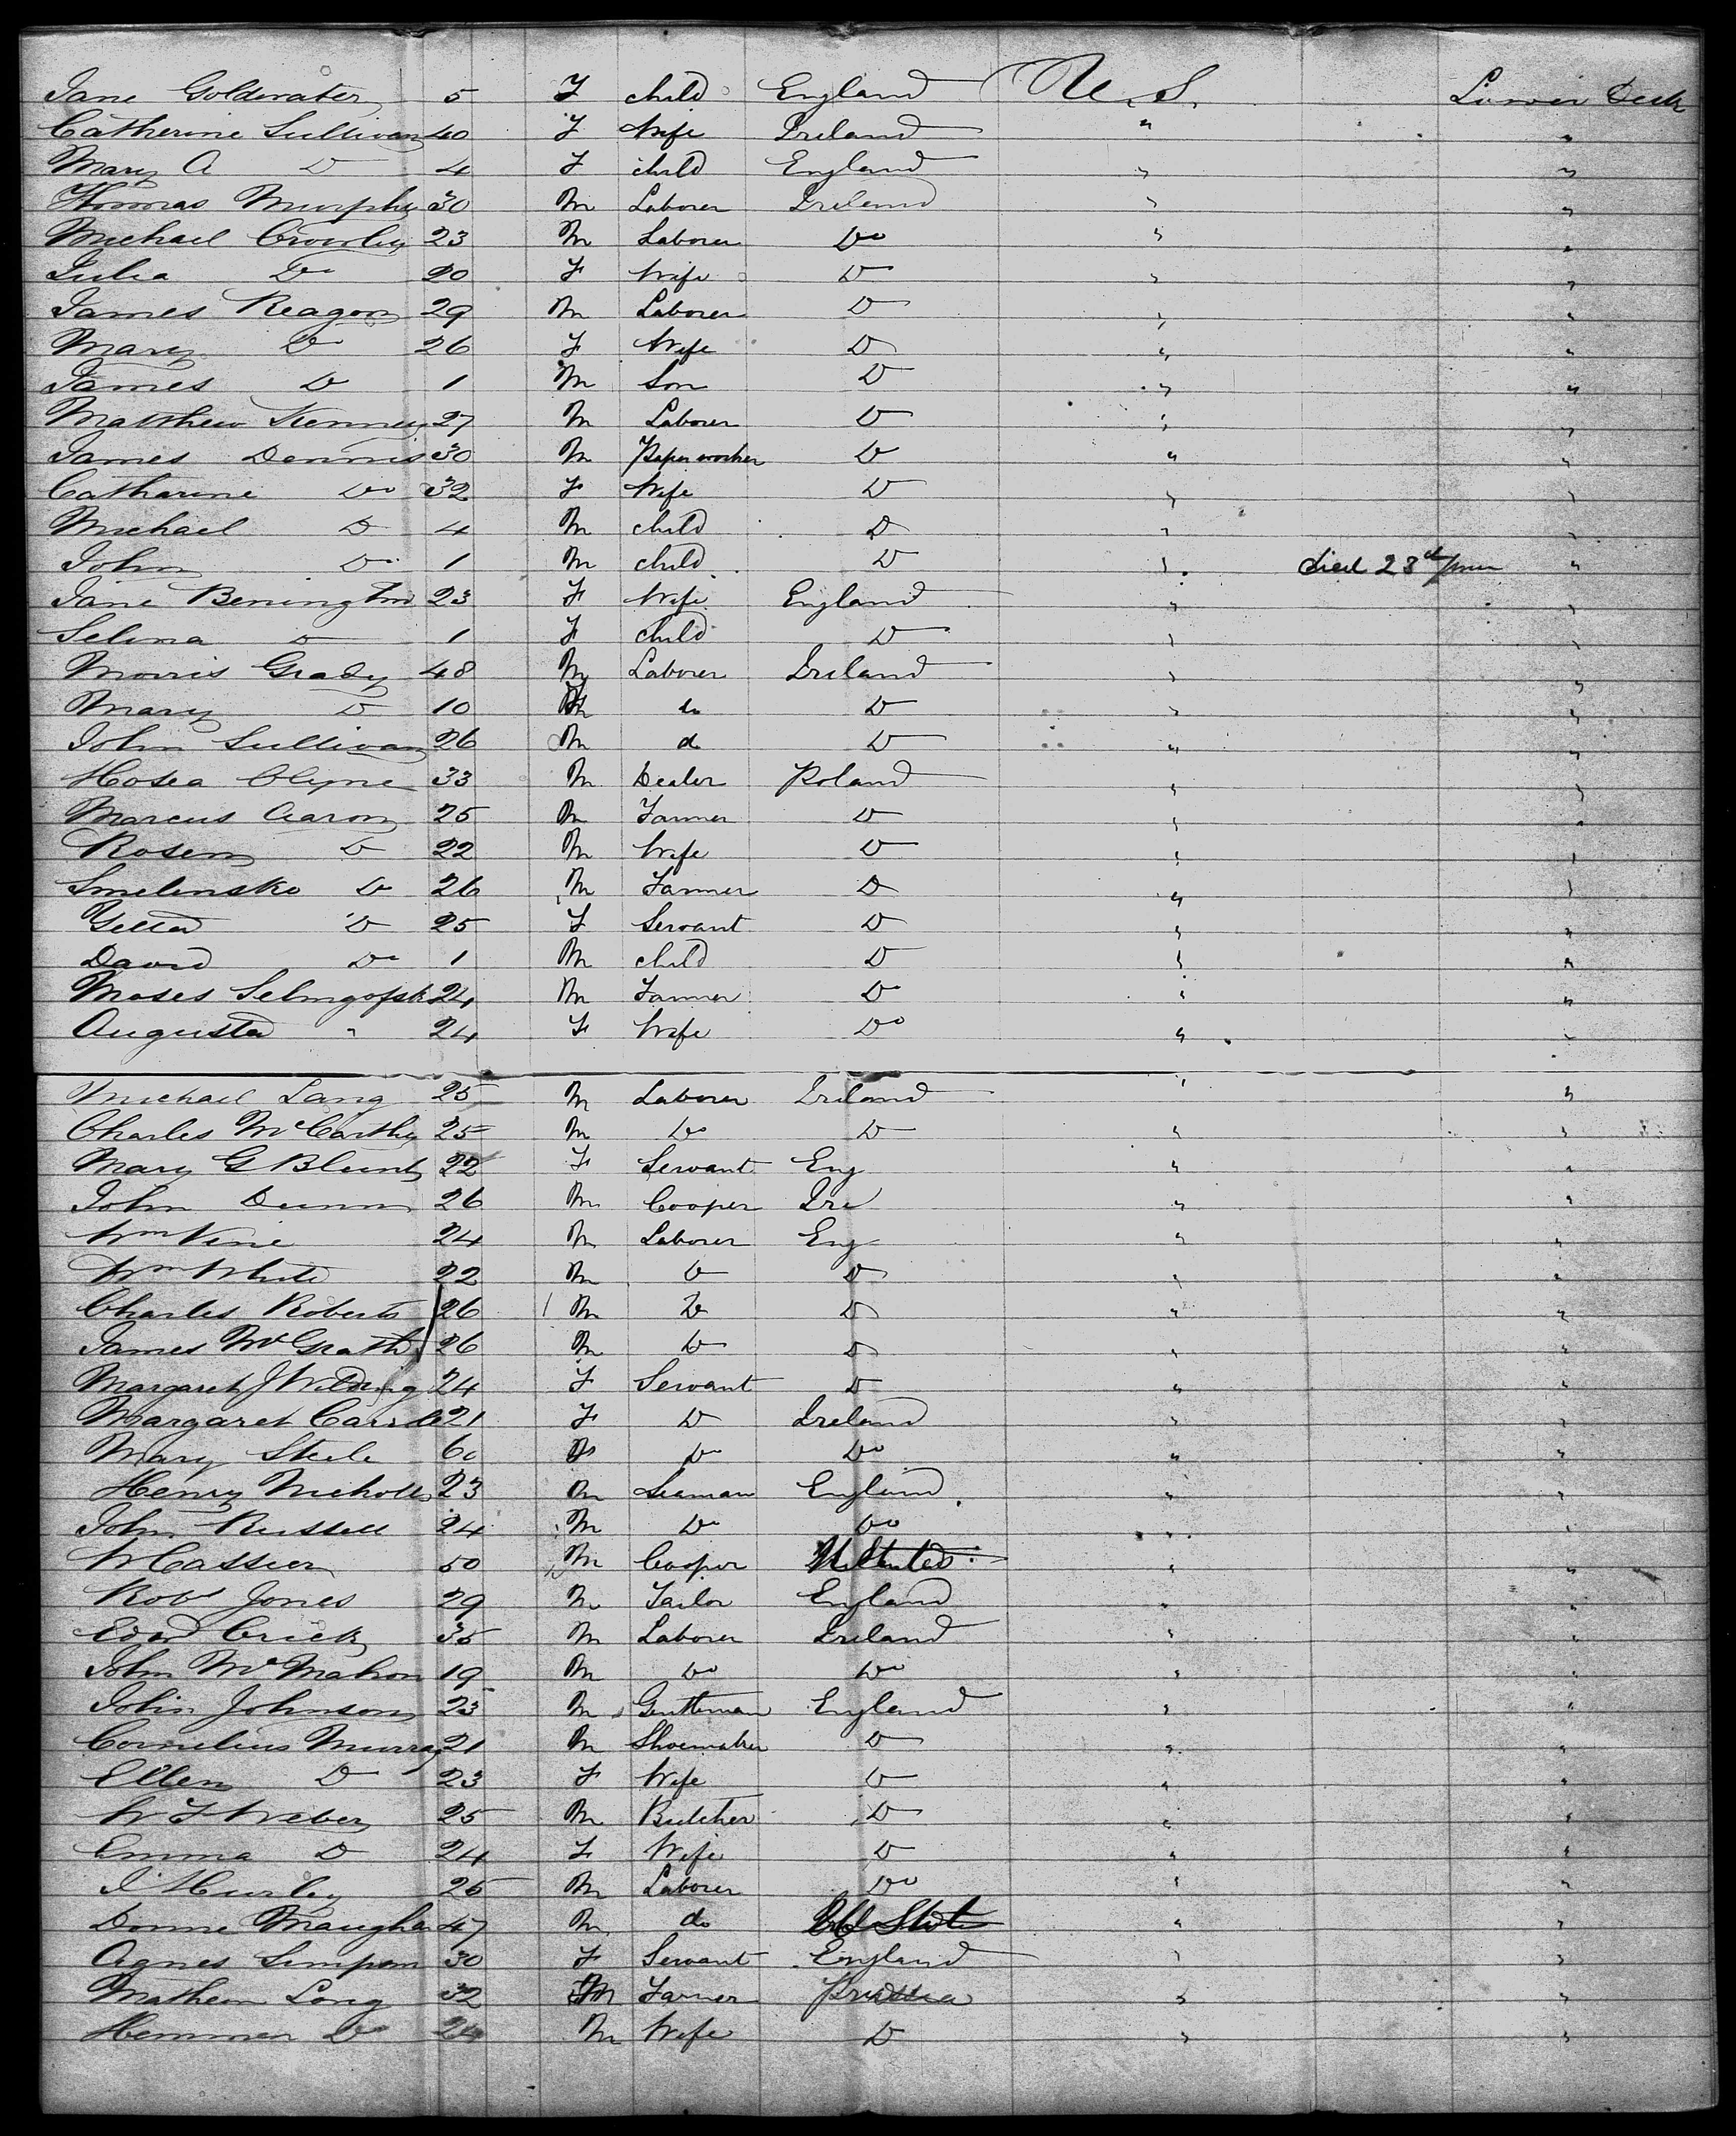 Jane Goldwater 5 F child England U.S. Lower Deck
Catherine Sullivan 40 F Wife Ireland " "
Mary A Do 4 F child England " "
Thomas Murphy 30 M Laborer Ireland " "
Michael Crowley 23 M Laborer Do " "
Julia Do 20 F Wife Do " "
James Reagon 29 M Laborer Do " "
Mary Do 26 F Wife Do " "
James Do 1 M Son Do " "
Matthew Kenney 27 M Laborer Do " "
James Dennis 30 M Paper worker Do " "
Catharine Do 32 F Wife Do " "
Michael Do 4 M child Do " "
John Do 1 M child Do " died 23d "
Jane Benington 23 F Wife England " "
Selina Do 1 F child Do " "
Morris Grady 48 M Laborer Ireland " "
Mary Do 10 do Do " "
John Sullivan 26 M do Do " "
Hosea Clyne 33 M Dealer Poland " "
Marcus Aaron 25 M Farmer Do " "
Rosem Do 22 M Wife Do " "
Smelensko Do 26 M Farmer Do " "
Yetta Do 25 F Servant Do " "
David Do 1 M child Do " "
Moses 24 M Farmer Do " "
Augusta " 24 F Wife Do " "
Michael Lang 25 M Laborer Ireland " "
Charles McCarthy 25 M Do Do " "
Mary G Blunt 22 F Servant Eng " "
John Dunn 26 M Cooper Ire " "
Wm Vine 24 M Laborer Eng " "
Wm White 22 M Do Do " "
Charles Roberts 26 M Do Do " "
James McGrath 26 M Do Do " "
Margaret J Wilding 24 F Servant Do " "
Margaret 21 F Do Ireland " "
Mary Steele 60 F Do Do " "
Henry Nicholls 23 M Seaman England " "
John Russell 24 M Do Do " "
W Cassien 50 M Cooper U States " "
Robt Jones 29 M Tailor England " "
Edwd Crick 35 M Laborer Ireland " "
John McMahon 19 M Do Do " "
John Johnson 25 M Gentleman England " "
Cornelius Murray 21 M Shoemaker Do " "
Ellen Do 23 F Wife Do " "
W F Weber 25 M Butcher Do " "
Emma Do 24 F Wife Do " "
J Hurley 25 M Laborer Do " "
Maugha 47 M do States " "
Agnes Simpson 30 F Servant England " "
Mathew Long 32 M Farmer Prussia " "
Hemmen Do 24 M Wife Do " "